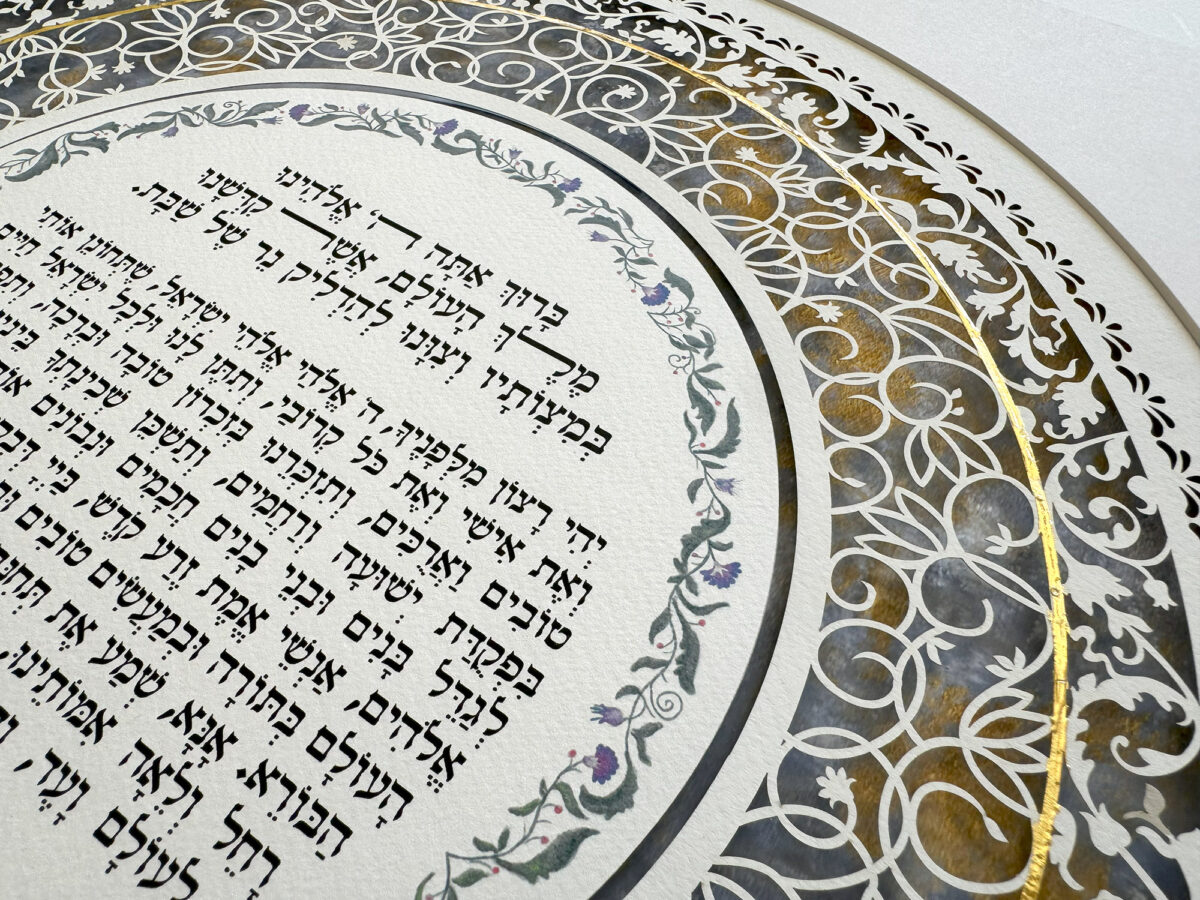 בָּרוּךְ אַתָּה ה' אֱלֹהֵינוּ
מֶלֶךְ הָעוֹלָם, אֲשֶׁר קִדְּשָׁנוּ
בְּמִצְוֹתָיו וְצִוָּנוּ לְהַדְלִיק נֵר שֶׁל שַׁבָּת.
יְהִי רָצוֹן מִלְּפָנֶיךָ, ה' אֱלֹהַי אֱלֹהֵי יִשְׂרָאֵל, שֶׁתְּחוֹנֵן אוֹתִי
וְאֶת אִישִׁי וְאֶת כָּל קְרוֹבַי, וְתִתֵּן לָנוּ וּלְכָל יִשְׂרָאֵל חַיִּים
טוֹבִים וַאֲרֻכִּים, וְתִזְכְּרֵנוּ בְּזִכְרוֹן טוֹבָה וּבְרָכָה,
בִּפְקֻדַּת יְשׁוּעָה וְרַחֲמִים, וְתַשְׁכֵּן שְׁכִינָתְךָ
לְגַדֵּל בָּנִים וּבְנֵי בָנִים חֲכָמִים וּנְבוֹנִים
אֱלֹהִים, אַנְשֵׁי אֱמֶת זֶרַע קֹדֶשׁ, בַּיְיָ
הָעוֹלָם בְּתוֹרָה וּבְמַעֲשִׂים טוֹבִים
הַבּוֹרֵא. אָנָּא, שְׁמַע אֶת
רָחֵל וְלֵאָה אִמּוֹתֵינוּ,
לְעוֹלָם וָעֶד,